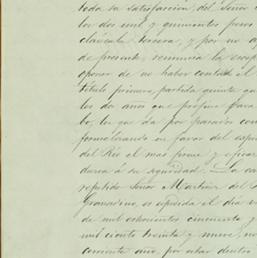 toda su satisfacción, del Señor
los dos mil y quinientos pesos
clausula tercera, y por no
de presente, renuncia la
oponer de no haber contado el
título primero, partida quinta que
los dos años que prefine para
bo, los que da por pasados como
formalizando en favor del
del Rio el mas firme y eficaz
duca á su seguridad. La
repetido Señor Martinez del
Granadino, es espedida el dia
de mil ochocientos cincuenta y
mil ciento treinta y nueve, no
corriente año, por estar dentro